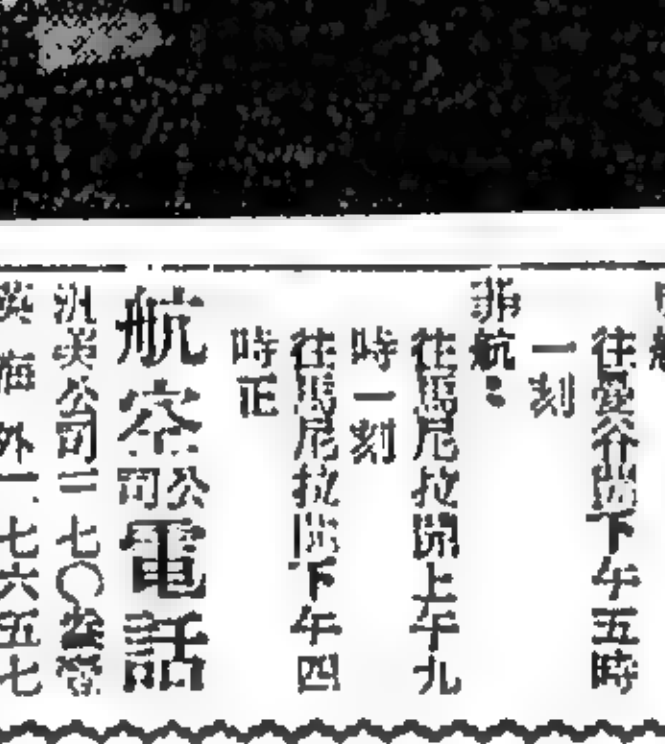 往曼谷開下午五時
一刻
菲航：
往馬尼拉開上午九
時一刻
往馬尼拉開下午四
時正
航空公司電話
汎美公司二七〇
英海外一七六五七